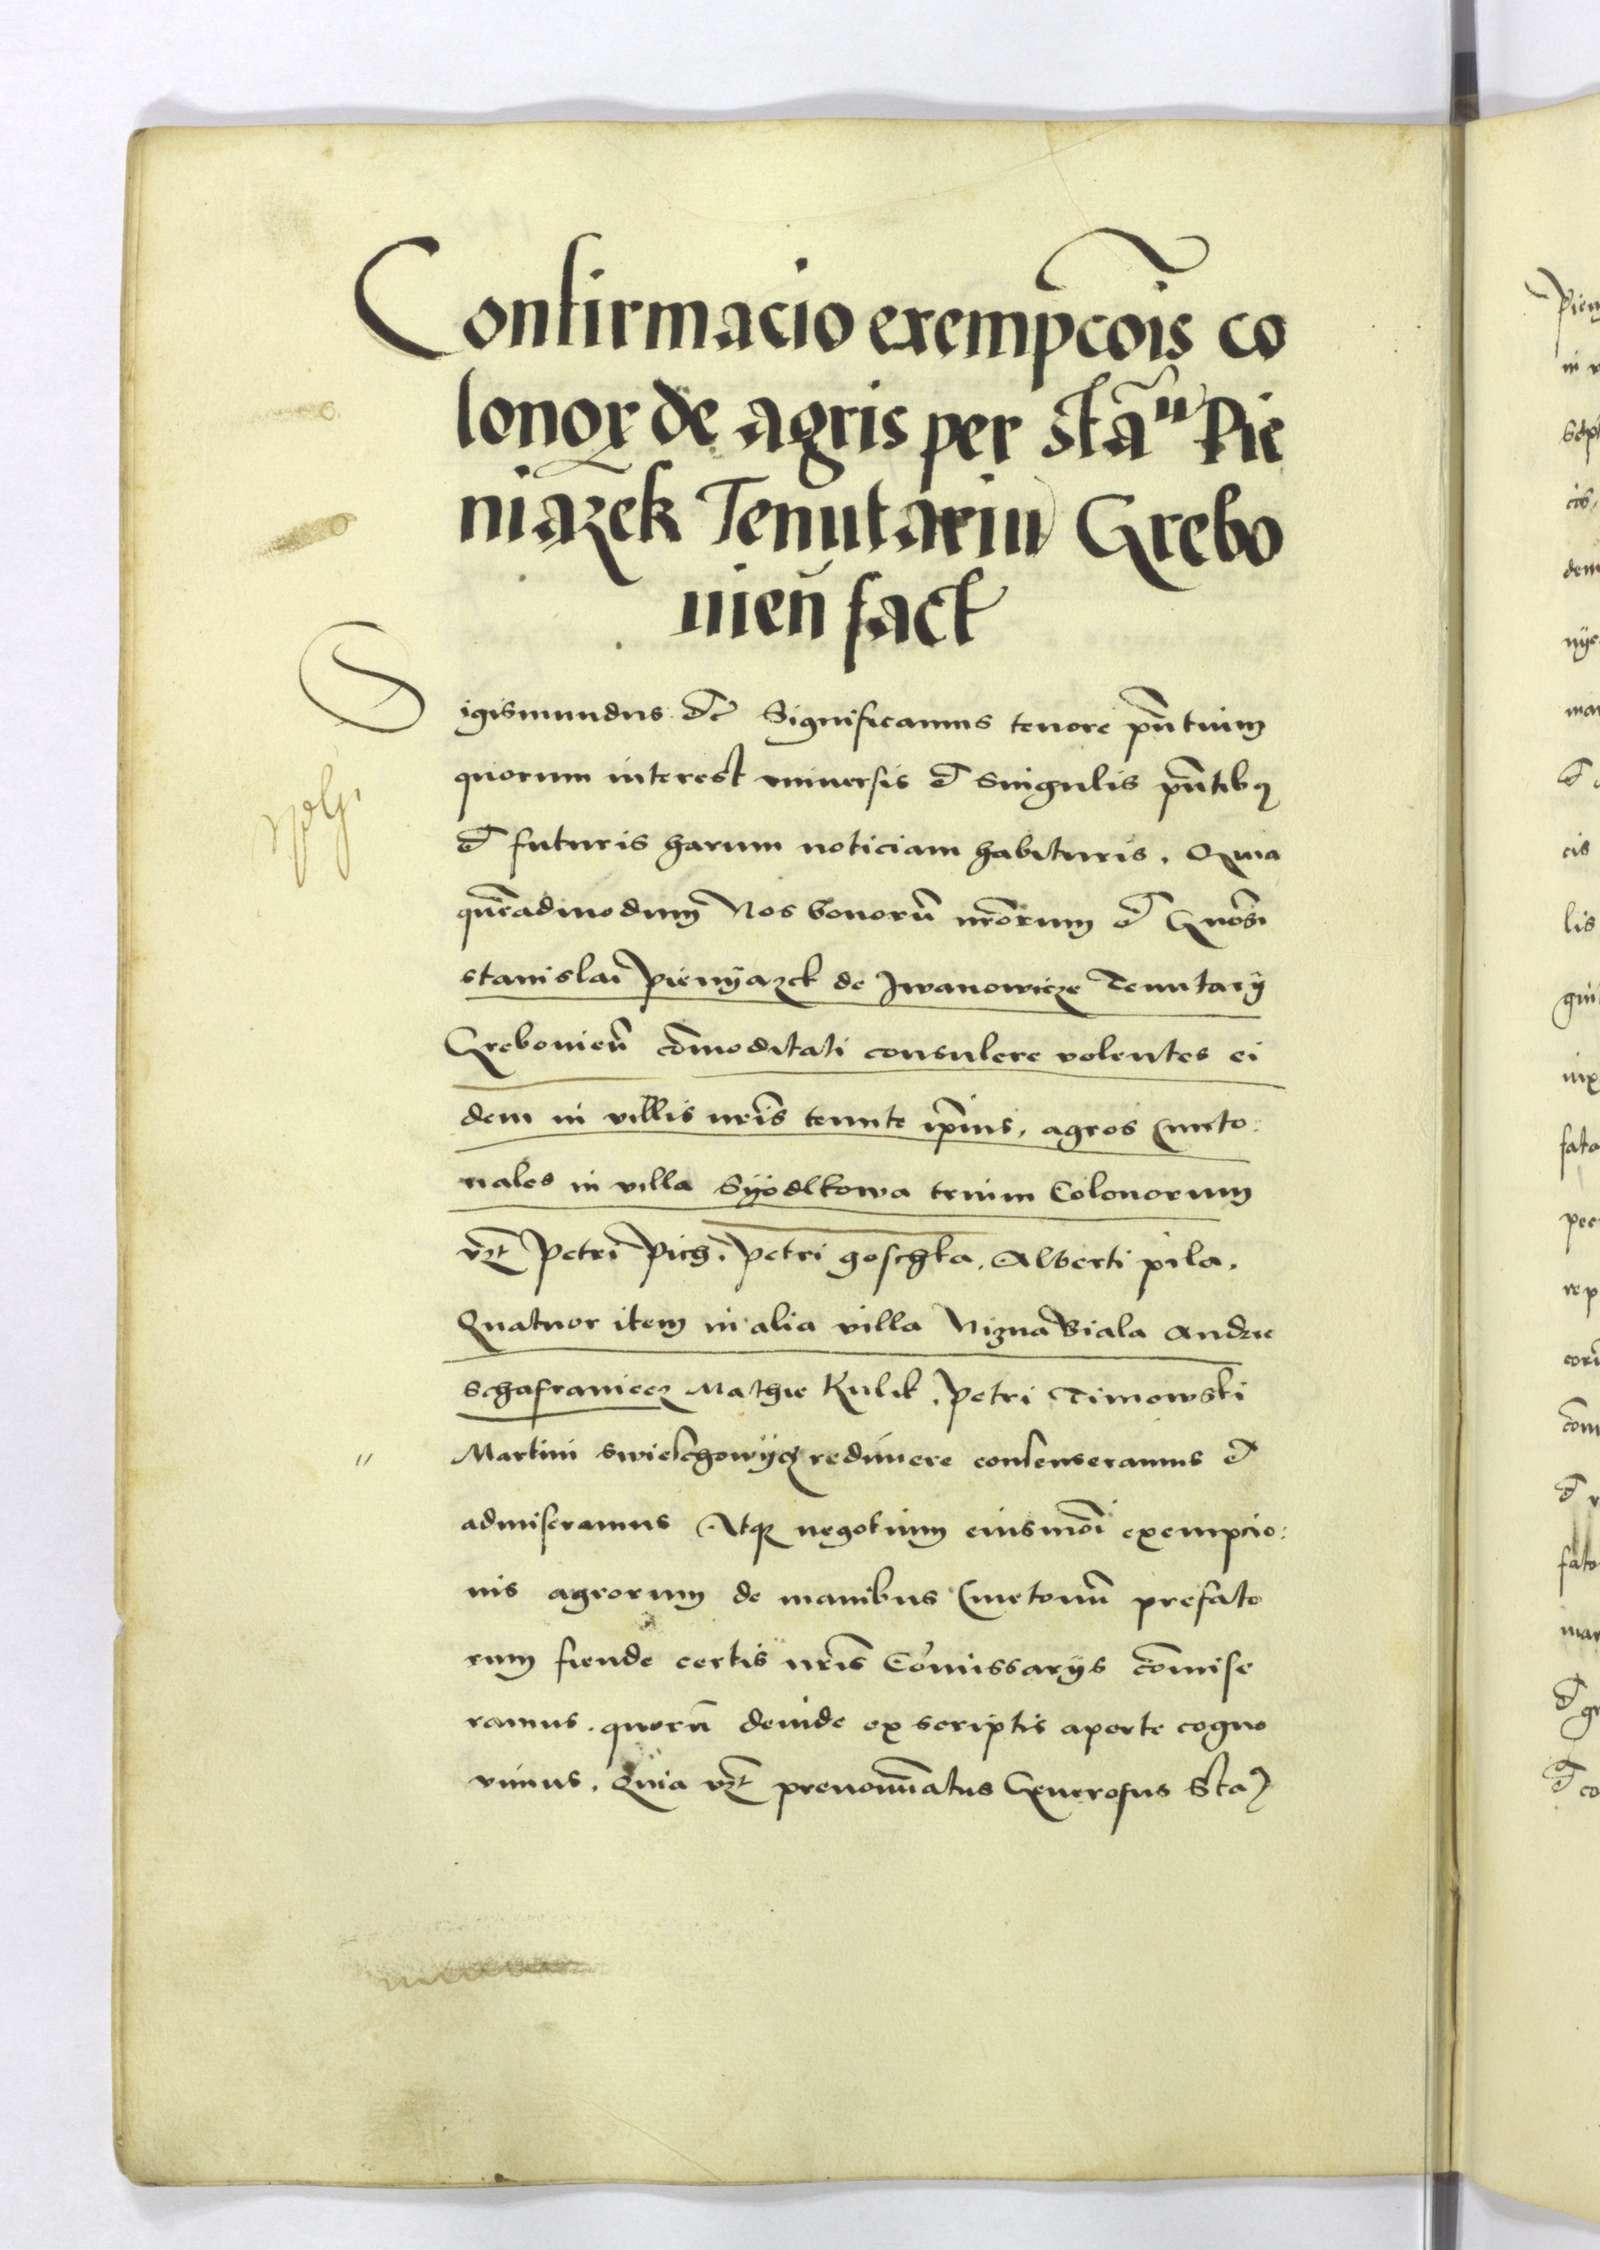 Confirmacio exempcõis co
lonoꝝ de agris per stãu Pie
niązek Tenutariu Grebo
nieñ fact
Sigismundus etc Significamus tenore pñtium
quorum interest uniuersis et singulis pñtibꝫ
et futuris harum noticiam habituris. Quia
quẽadmodum Nos bonorũ nrõrum et Gnõsi
stanislai pienyazek de Iwanowicze Tenutarÿ
Grebonieñ cõmoditati consulere volentes ei
dem in villis nrĩs tenute ipĩus, agros Cmeto:
nales in villa Syodlkowa trium Colonorum
vꝫt Petri Pich. Petri goschka. Alberti pila.
Quatuor item in alia villa Nizna Biala Andree
schafraniecz Mathie Kulik. Petri Timowski
Martini swieschowÿcz redimere consenseramus et
admiseramus Atqꝫ negotium eiusmõi exempcio:
nis agrorum de manibus Cmetonũ prefato
rum fiende certis nrĩs Cõmissarÿs cõmise
ramus. quorũ deinde ex scriptis aperte cogno
uimus. Quia vꝫt prenoĩnatus Generosus Sta